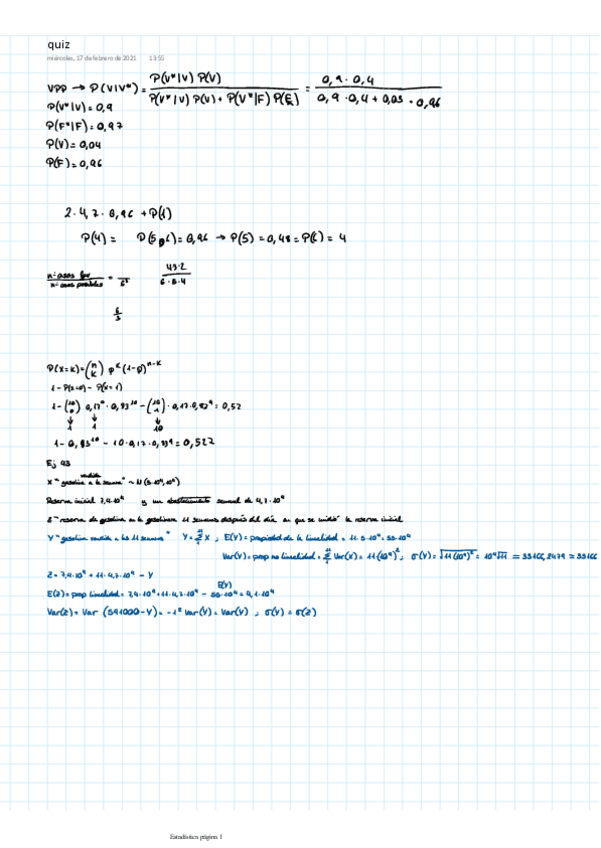 quiz
miércoles, 17 de febrero de 2021 13:55
VPP → P(V|V*) = P(V*|V) P(V) / P(V*|V) P(V) + P(V*|F) P(F) = 0,9 · 0,4 / 0,9 · 0,4 + 0,03 · 0,96
P(V*|V) = 0,9
P(F*|F) = 0,97
P(V) = 0,04
P(F) = 0,96
2 · 4,7 · 0,96 + P(1)
P(4) = P(5 o 6) = 0,96 → P(5) = 0,48 = P(6) = 4
nº casos fav / nº casos posibles = / 6³ 43·2 / 6·8·4
6 / 3
P(X=k) = (n k) p^k (1-p)^n-k
1 - P(X=0) - P(X=1)
1 - (10 0) 0,17⁰ · 0,83¹⁰ - (10 1) · 0,17 · 0,83⁹ = 0,52
↓ ↓ ↓
1 1 10
1 - 0,83¹⁰ - 10 · 0,17 · 0,83⁹ = 0,522
Ej 43
vendida
X "gasolina a la semana" ~ N (5·10⁴, 10⁴)
Reserva inicial 7,4·10⁴ y un abastecimiento semanal de 4,7·10⁴
Z "reserva de gasolina en la gasolinera 11 semanas después del día en que se midió la reserva inicial
Y "gasolina vendida a las 11 semanas" Y = Σ X ; E(Y) = propiedad de la linealidad = 11 · 5·10⁴ = 55·10⁴
Var(Y) = prop no linealidad = Σ Var(X) = 11(10⁴)² ; σ(Y) = √11(10⁴)² = 10⁴√11 = 33166,2479 ≈ 33166
Z = 7,4·10⁴ + 11 · 4,7·10⁴ - Y
E(Y)
E(Z) = prop linealidad = 7,4·10⁴ + 11 · 4,7·10⁴ - 55·10⁴ = 4,1·10⁴
Var(Z) = Var (591000 - Y) = -1² Var(Y) = Var(Y) ; σ(Y) = σ(Z)
Estadística página 1